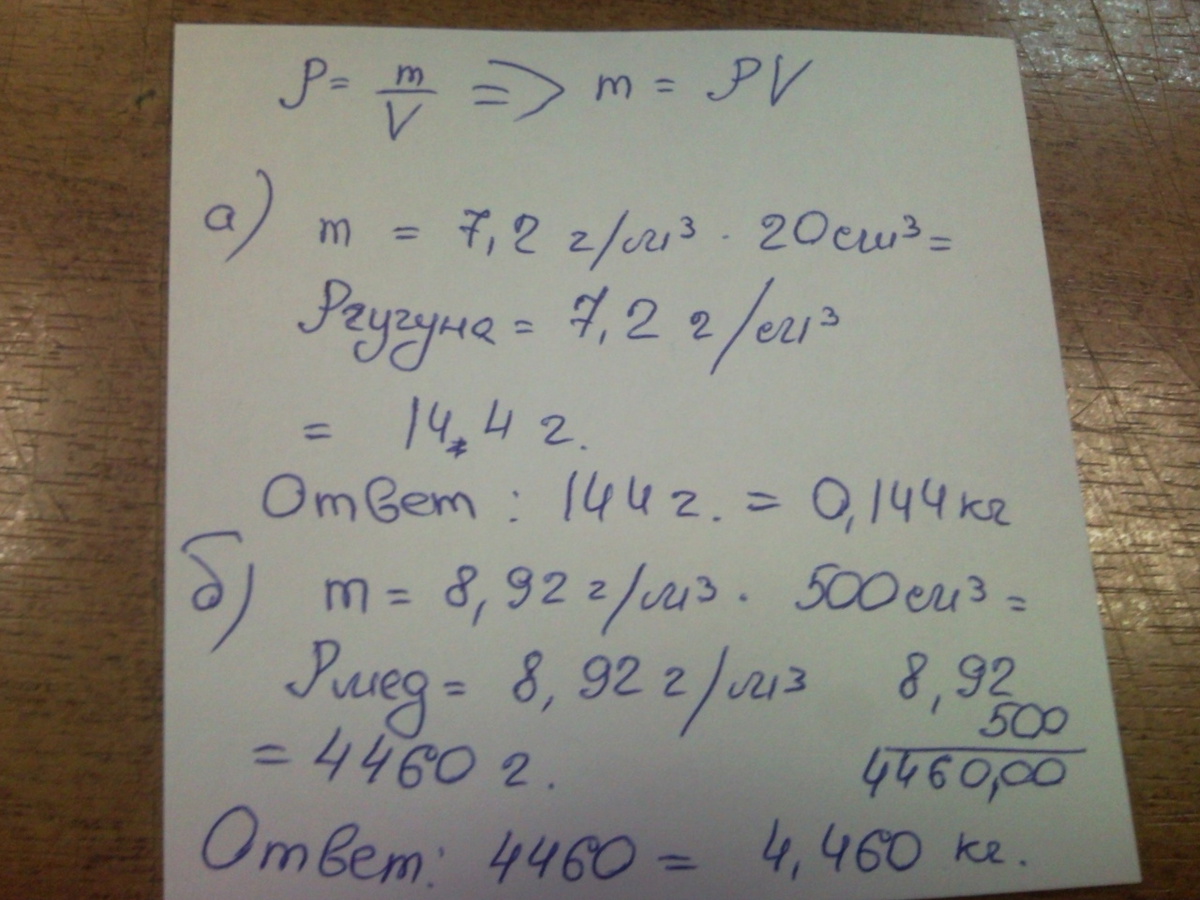 ρ = m/V => m = ρV
а) m = 7,2 г/м³ · 20см³ =
ρчугуна = 7,2 г/см³
= 144 г.
Ответ: 144 г. = 0,144 кг
б) m = 8,92 г/м³ · 500см³ =
ρмед = 8,92 г/м³ 8,92
500
= 4460 г. 4460,00
Ответ: 4460 = 4,460 кг.